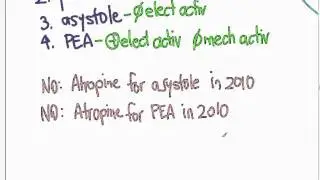 3. asystole-∅elect activ
4. PEA-⊕elect activ ∅mech activ
NO: Atropine for asystole in 2010
NO: Atropine for PEA in 2010